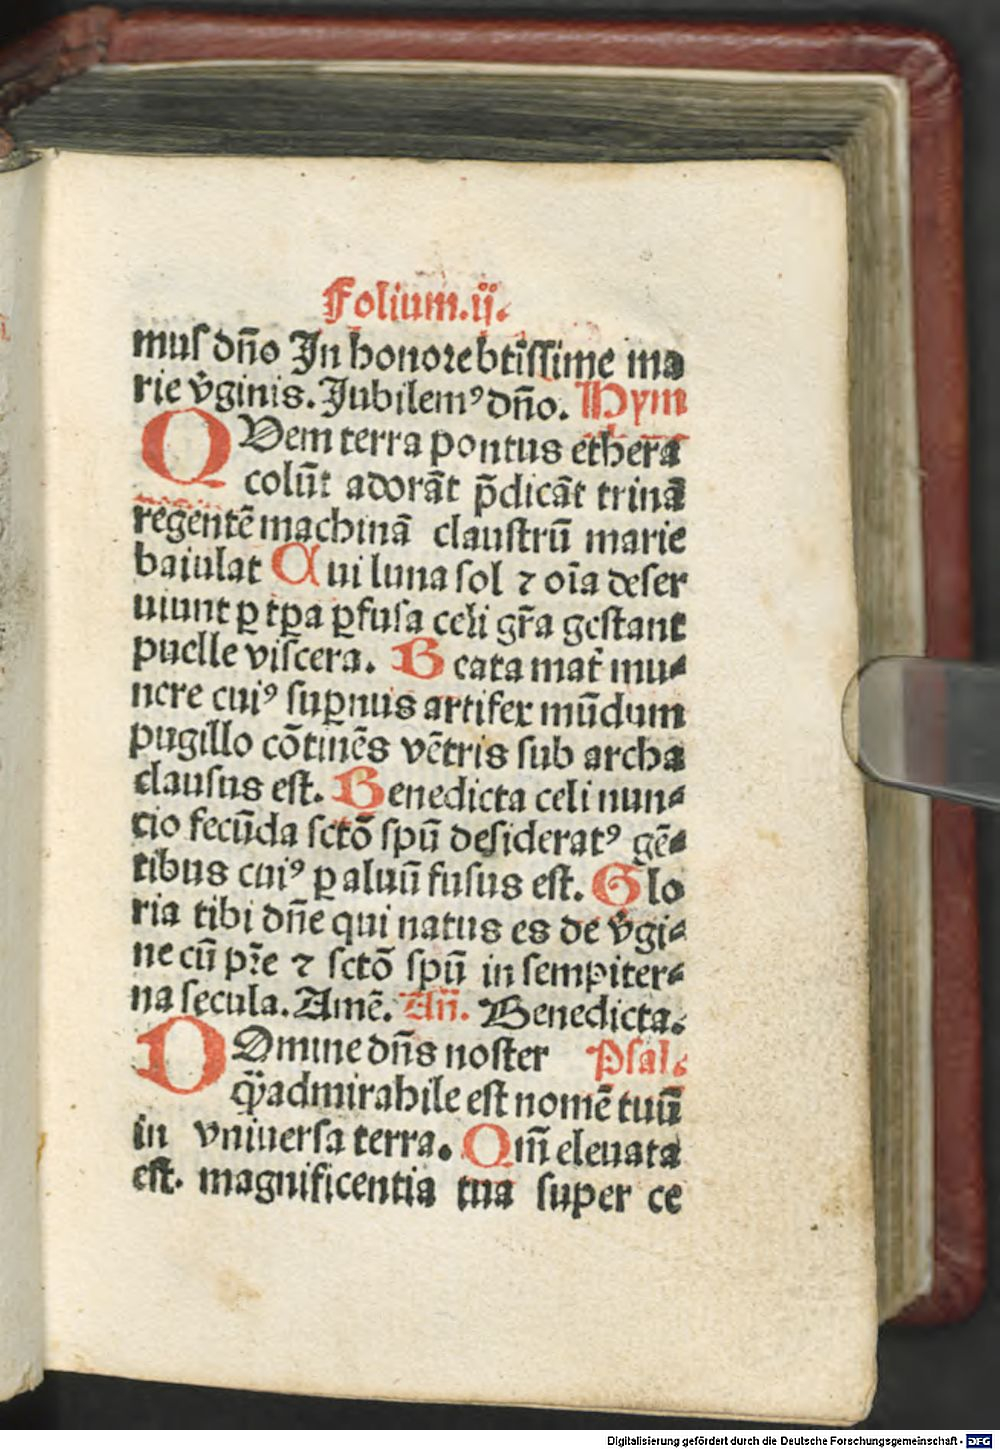 Folium.ij.
muſ dn̄o In honore btīſſime ma
rie v̄ginis. Jubilemꝰ dn̄o. Hym
QVem terra pontus ethera
colūt adorāt p̄dicāt trinā
regentē machinā claustrū marie
baiulat Cui luna ſol ⁊ oīa deſer
uiunt ꝑ tꝑa ꝑfuſa celi gr̄a geſtant
puelle viſcera. Beata mat̄ mu⸗
nere cuiꝰ ſuꝑnus artifex mūdum
pugillo cōtinēs vētris ſub archa
clauſus eſt. Benedicta celi nun⸗
cio fecūda ſctō ſpū deſideratꝰ gē⸗
tibus cuiꝰ ꝑ aluū fuſus eſt. Glo
ria tibi dn̄e qui natus es de v̄gi⸗
ne cū pr̄e ⁊ ſctō ſpū in ſempiter⸗
na ſecula. Amē. An̄. Benedicta.
DOmine dn̄s noſter Pſal.
q̄ȝ admirabile eſt nomē tuū
in vniuerſa terra. Qm̄ eleuata
eſt. magnificentia tua ſuper ce
Digitalisierung gefördert durch die Deutsche Forschungsgemeinschaft - DFG